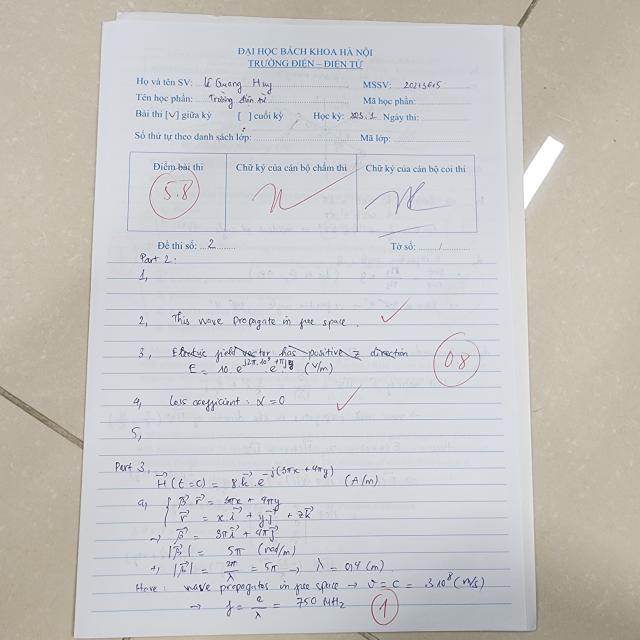 ĐẠI HỌC BÁCH KHOA HÀ NỘI
TRƯỜNG ĐIỆN – ĐIỆN TỬ
Họ và tên SV: Lê Quang Huy MSSV:
Tên học phần: Trường điện từ Mã học phần:
Bài thi [V] giữa kỳ [ ] cuối kỳ Học kỳ: 2023.1 Ngày thi:
Số thứ tự theo danh sách lớp: Mã lớp:
Điểm bài thi Chữ ký của cán bộ chấm thi Chữ ký của cán bộ coi thi
5.8
Đề thi số: 2 Tờ số: 1
Part 2:
1,
2, This wave propagate in free space.
3, Electric field vector has positive z direction
E = 10.e^j2π.10^8 .e^+πjy (V/m)
0.8
4, Loss coefficient: α = 0
5,
Part 3,
H⃗(t=0) = 8.k⃗.e^-j(3πx + 4πy) (A/m)
a, { β⃗.r⃗ = 3πx + 4πy
r⃗ = x.i⃗ + y.j⃗ + z.k⃗
→ β⃗ = 3π.i⃗ + 4π.j⃗
|β⃗| = 5π (rad/m)
+, |k⃗| = 2π/λ = 5π → λ = 0,4 (m)
Have: wave propagates in free space → v = c = 3.10^8 (m/s)
→ f = c/λ = 750 MHz
1